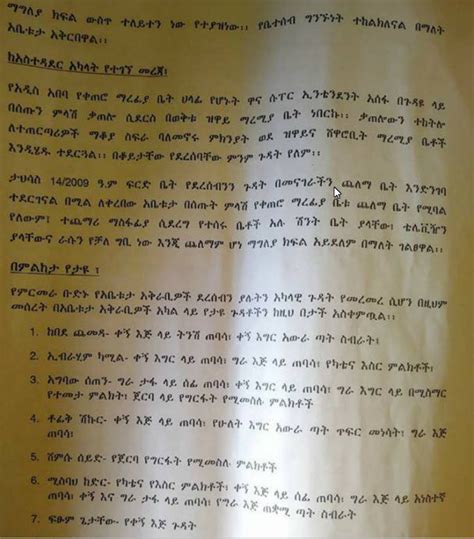 ማግለያ ክፍል ውስጥ ተለይተን ነው የተያዝነው፡፡ የቤተሰብ ግንኙነት ተከልክለናል በማለት
አቤቱታ አቅርበዋል፡፡
ከአስተዳደር አካላት የተገኘ መረጃ፤
የአዲስ አበባ የቀጠሮ ማረፊያ ቤት ሀላፊ የሆኑት ዋና ሱፐር ኢንቴንደንት አሰፋ በጉዳዩ ላይ
በሰጡን ምላሽ ቃጠሎ ሲደርስ በወቅቱ ዝዋይ ማረሚያ ቤት ነበርኩ፡፡ ቃጠሎውን ተከትሎ
ለተጠርጣሪዎች ማቆያ ስፍራ ባለመኖሩ ምክንያት ወደ ዝዋይና ሸዋሮቢት ማረሚያ ቤቶች
እንዲሄዱ ተደርጓል፡፡ በቆይታቸው የደረሰባቸው ምንም ጉዳት የለም፡፡
ታህሳስ 14/2009 ዓ.ም ፍርድ ቤት የደረሰብንን ጉዳት በመናገራችን ጨለማ ቤት እንድንገባ
ተደርገናል በሚል ለቀረበው አቤቱታ በሰጡት ምላሽ የቀጠሮ ማረፊያ ቤቱ ጨለማ ቤት የሚባል
የለውም፤ ተጨማሪ ማስፋፊያ ሲደረግ የተሰሩ ቤቶች አሉ ሽንት ቤት ያላቸው፤ ቴሌቪዥን
ያላቸውና ራሱን የቻለ ግቢ ነው እንጂ ጨለማም ሆነ ማግለያ ክፍል አይደለም በማለት ገልፀዋል፡፡
በምልከታ የታዩ ፤
የምርመራ ቡድኑ የአቤቱታ አቅራቢዎች ደረሰብን ያሉትን አካላዊ ጉዳት የመረመረ ሲሆን በዚህም
መሰረት በአቤቱታ አቅራቢዎች አካል ላይ የታዩ ጉዳቶችን ከዚህ በታች አስቀምጧል፡፡
1. ከበደ ጨመዳ- ቀኝ እጅ ላይ ትንሽ ጠባሳ፤ ቀኝ እግር አውራ ጣት ስብራት፤
2. ኢብራሂም ካሚል- ቀኝ እግር ላይ ጠባሳ፤ ግራ እጅ ላይ ጠባሳ፤ የካቴና እስር ምልክቶች፤
3. አግባው ሰጠኝ- ግራ ታፋ ላይ ሰፊ ጠባሳ፤ ቀኝ እግር ላይ ጠባሳ፤ ግራ እግር ላይ በሚስማር
የተመታ ምልክት፤ ጀርባ ላይ የግርፋት የሚመስሉ ምልክቶች
4. ቶፊቅ ሽኩር- ቀኝ እጅ ላይ ጠባሳ፤ የሁለት እግር አውራ ጣት ጥፍር መነሳት፤ ግራ እጅ
ጠባሳ፤
5. ሸምሱ ሰይድ- የጀርባ የግርፋት የሚመስሉ ምልክቶች
6. ሚስባህ ከድር- የካቴና የእስር ምልክቶች፤ ቀኝ እጅ ላይ ሰፊ ጠባሳ፤ ግራ እጅ ላይ አነስተኛ
ጠባሳ፤ ቀኝ እና ግራ ታፋ ላይ ጠባሳ፤ የግራ እጅ ጠቋሚ ጣት ስብራት
7. ፍፁም ጌታቸው- የቀኝ እጅ ጉዳት